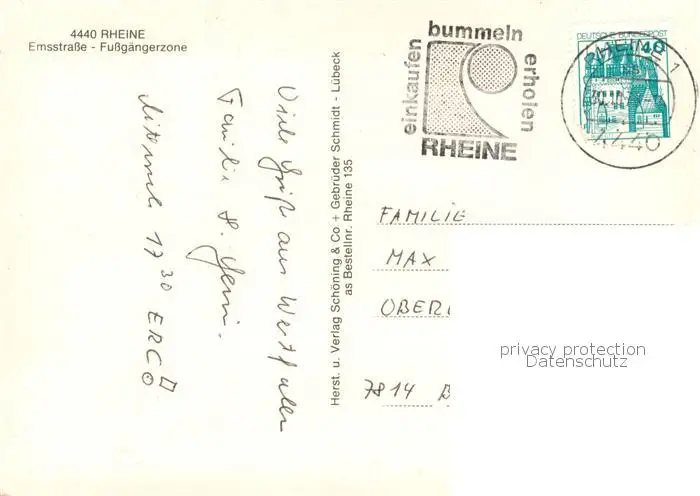 4440 RHEINE
Emsstraße - Fußgängerzone
Viele Grüße aus Westfalen
Familie H.
Mittwoch 17 30 ERCO
Herst. u. Verlag Schöning & Co + Gebrüder Schmidt - Lübeck
as Bestellnr. Rheine 135
einkaufen
bummeln
erholen
RHEINE
DEUTSCHE BUNDESPOST
40
RHEINE 1
4440
FAMILIE
MAX
OBER
7814
privacy protection
Datenschutz